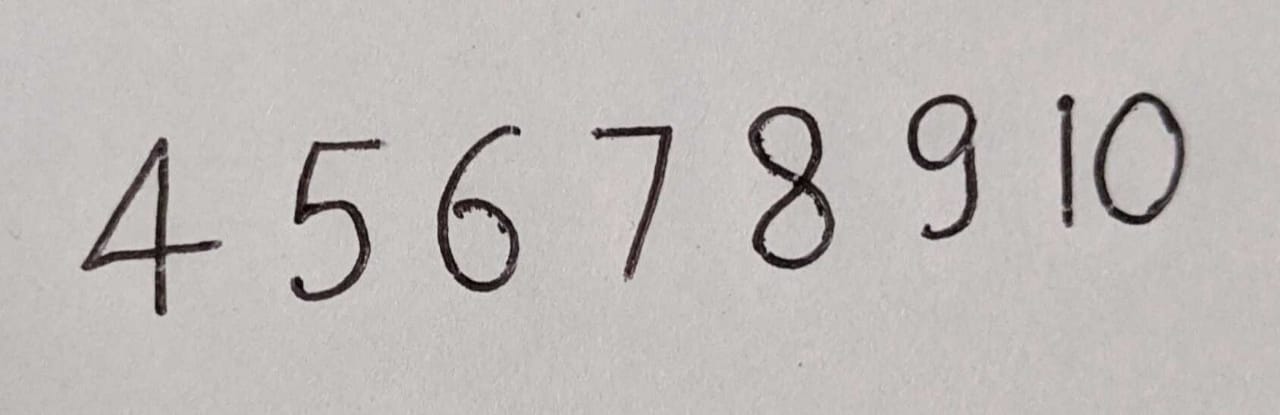 4 5 6 7 8 9 10